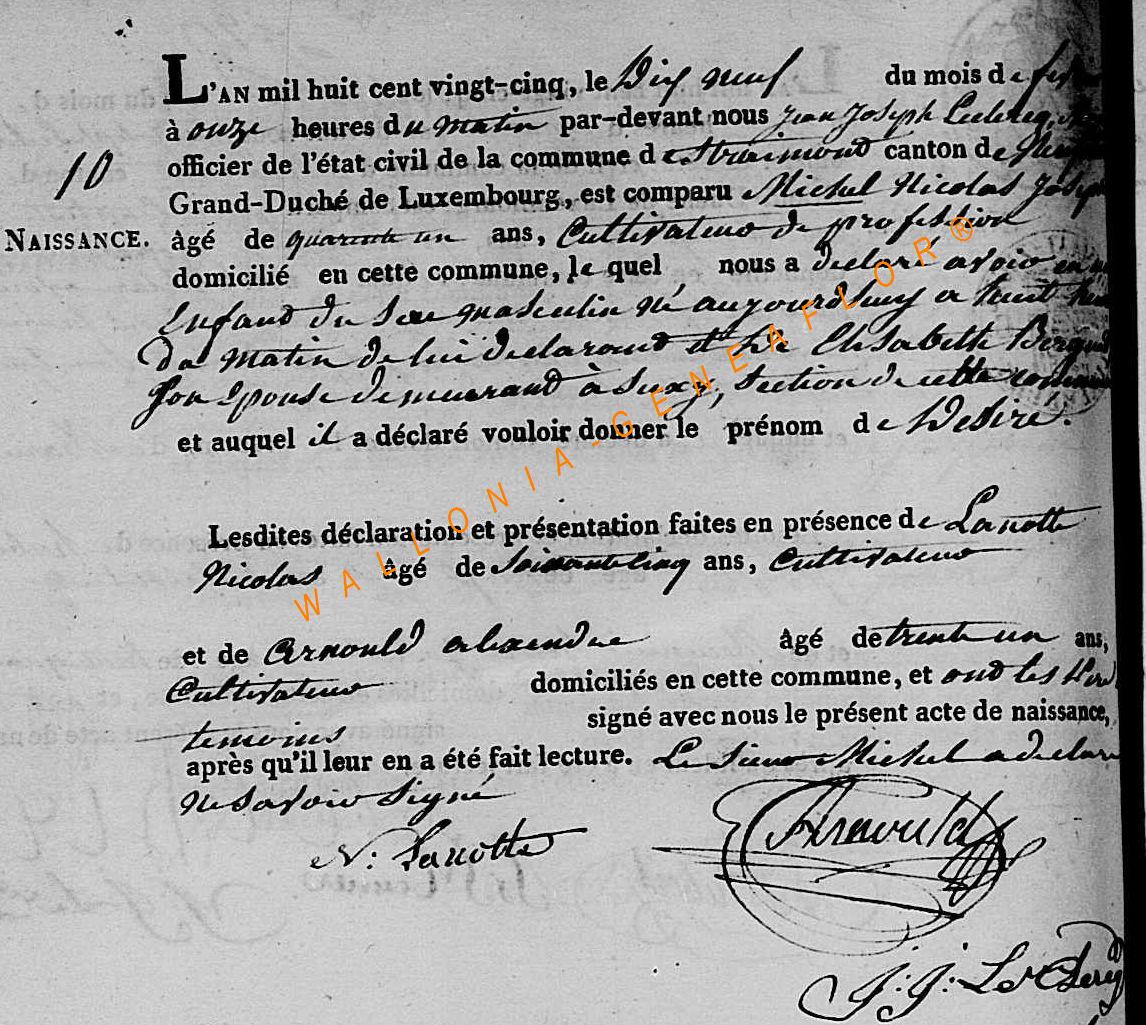 L'AN mil huit cent vingt-cinq, le Dix neuf du mois de
à onze heures du matin par-devant nous Jean Joseph Leclercq
officier de l'état civil de la commune de Straimont canton de
Grand-Duché de Luxembourg, est comparu Michel Nicolas Joseph
10
NAISSANCE. âgé de quarante un ans, Cultivateur de profession
domicilié en cette commune, lequel nous a declaré avoir eu
Enfant du Sexe masculin né aujourdhuy a huit
du matin de lui declarant et de Elisabette
son Epouse demeurant à Suxy, Section de cette commune
et auquel il a déclaré vouloir donner le prénom de Desiré.
Lesdites déclaration et présentation faites en présence de Lanotte
Nicolas âgé de Soixante cinq ans, Cultivateur
et de Arnould alexandre âgé de trente un ans,
Cultivateur domiciliés en cette commune, et ont les
temoins signé avec nous le présent acte de naissance,
après qu'il leur en a été fait lecture. Le Sieur Michel a declaré
Ne Savoir Signé
N: Lanotte
Arnould
J: J: Leclercq
WALLONIA-GENEAFLOR®